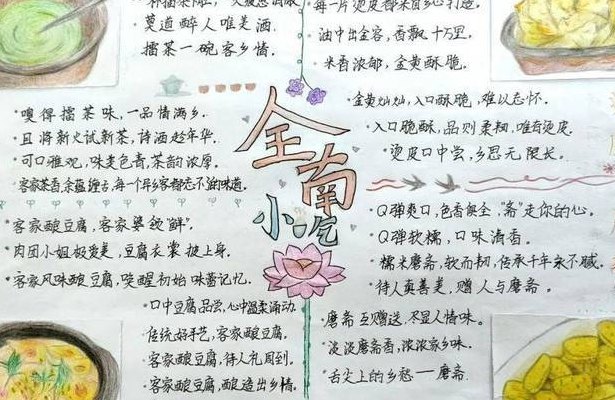 莫道醉人唯美酒,
擂茶一碗客乡情。
·嗅得擂茶味,一品情满乡。
·且将新火试新茶,诗酒趁年华。
·可口雅观,味美色香,茶韵浓厚。
·客家茶香余蕴缠古,每一个异乡客都忘不了的味道。
油中出金容,香飘十万里。
·米香浓郁,金黄酥脆。
·金黄灿灿,入口酥脆,难以忘怀。
·入口脆酥,品则柔韧,唯有烫皮。
·烫皮口中尝,乡思无限长。
全南
小吃
·客家酿豆腐,客家婆级“鲜”。
·肉团小姐极爱美,豆腐衣裳披上身。
·客家风味酿豆腐,唤醒初始味蕾记忆。
·口中豆腐品尝,心中温柔涌动。
·传统好手艺,客家酿豆腐。
·客家酿豆腐,待人礼周到。
·客家酿豆腐,酿造出乡情。
·Q弹爽口,色香俱全,“斋”走你的心。
·Q弹软糯,口味清香。
·糯米磨斋,软而韧,传承千年永不腻。
·待人真善美,赠人与磨斋。
·磨斋互赠送,尽显人情味。
·淡淡磨斋香,浓浓家乡味。
·舌尖上的乡愁——磨斋.